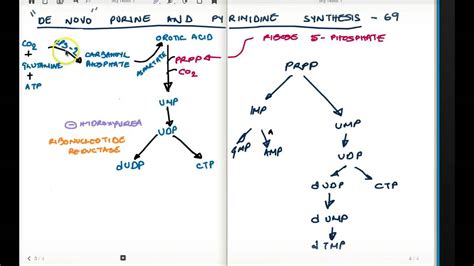 "DE NOVO PURINE AND PYRIMIDINE SYNTHESIS - 69
CO2
+
GLUTAMINE
+
ATP
CPS-2
CARBAMOYL
PHOSPHATE
ASPARTATE
OROTIC ACID
PRPP
CO2
RIBOSE 5-PHOSPHATE
UMP
UDP
⊖ HYDROXYUREA
RIBONUCLEOTIDE
REDUCTASE
dUDP
CTP
PRPP
IMP
GMP
AMP
UMP
UDP
dUDP
CTP
dUMP
dTMP